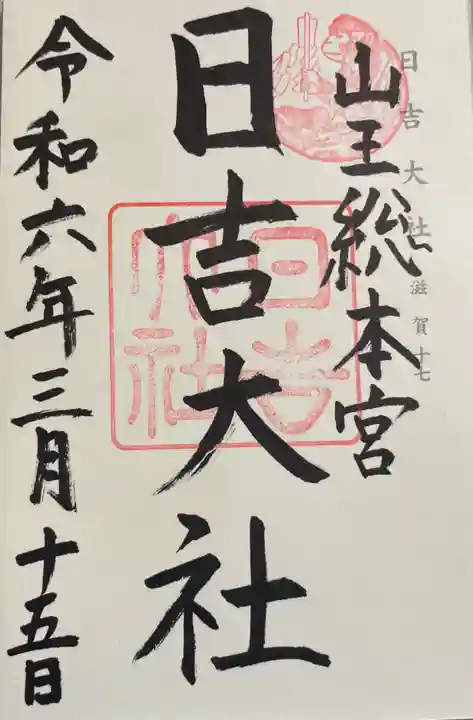 日吉大社 滋賀十七
山王総本宮
日吉大社
日吉大社
令和六年三月十五日